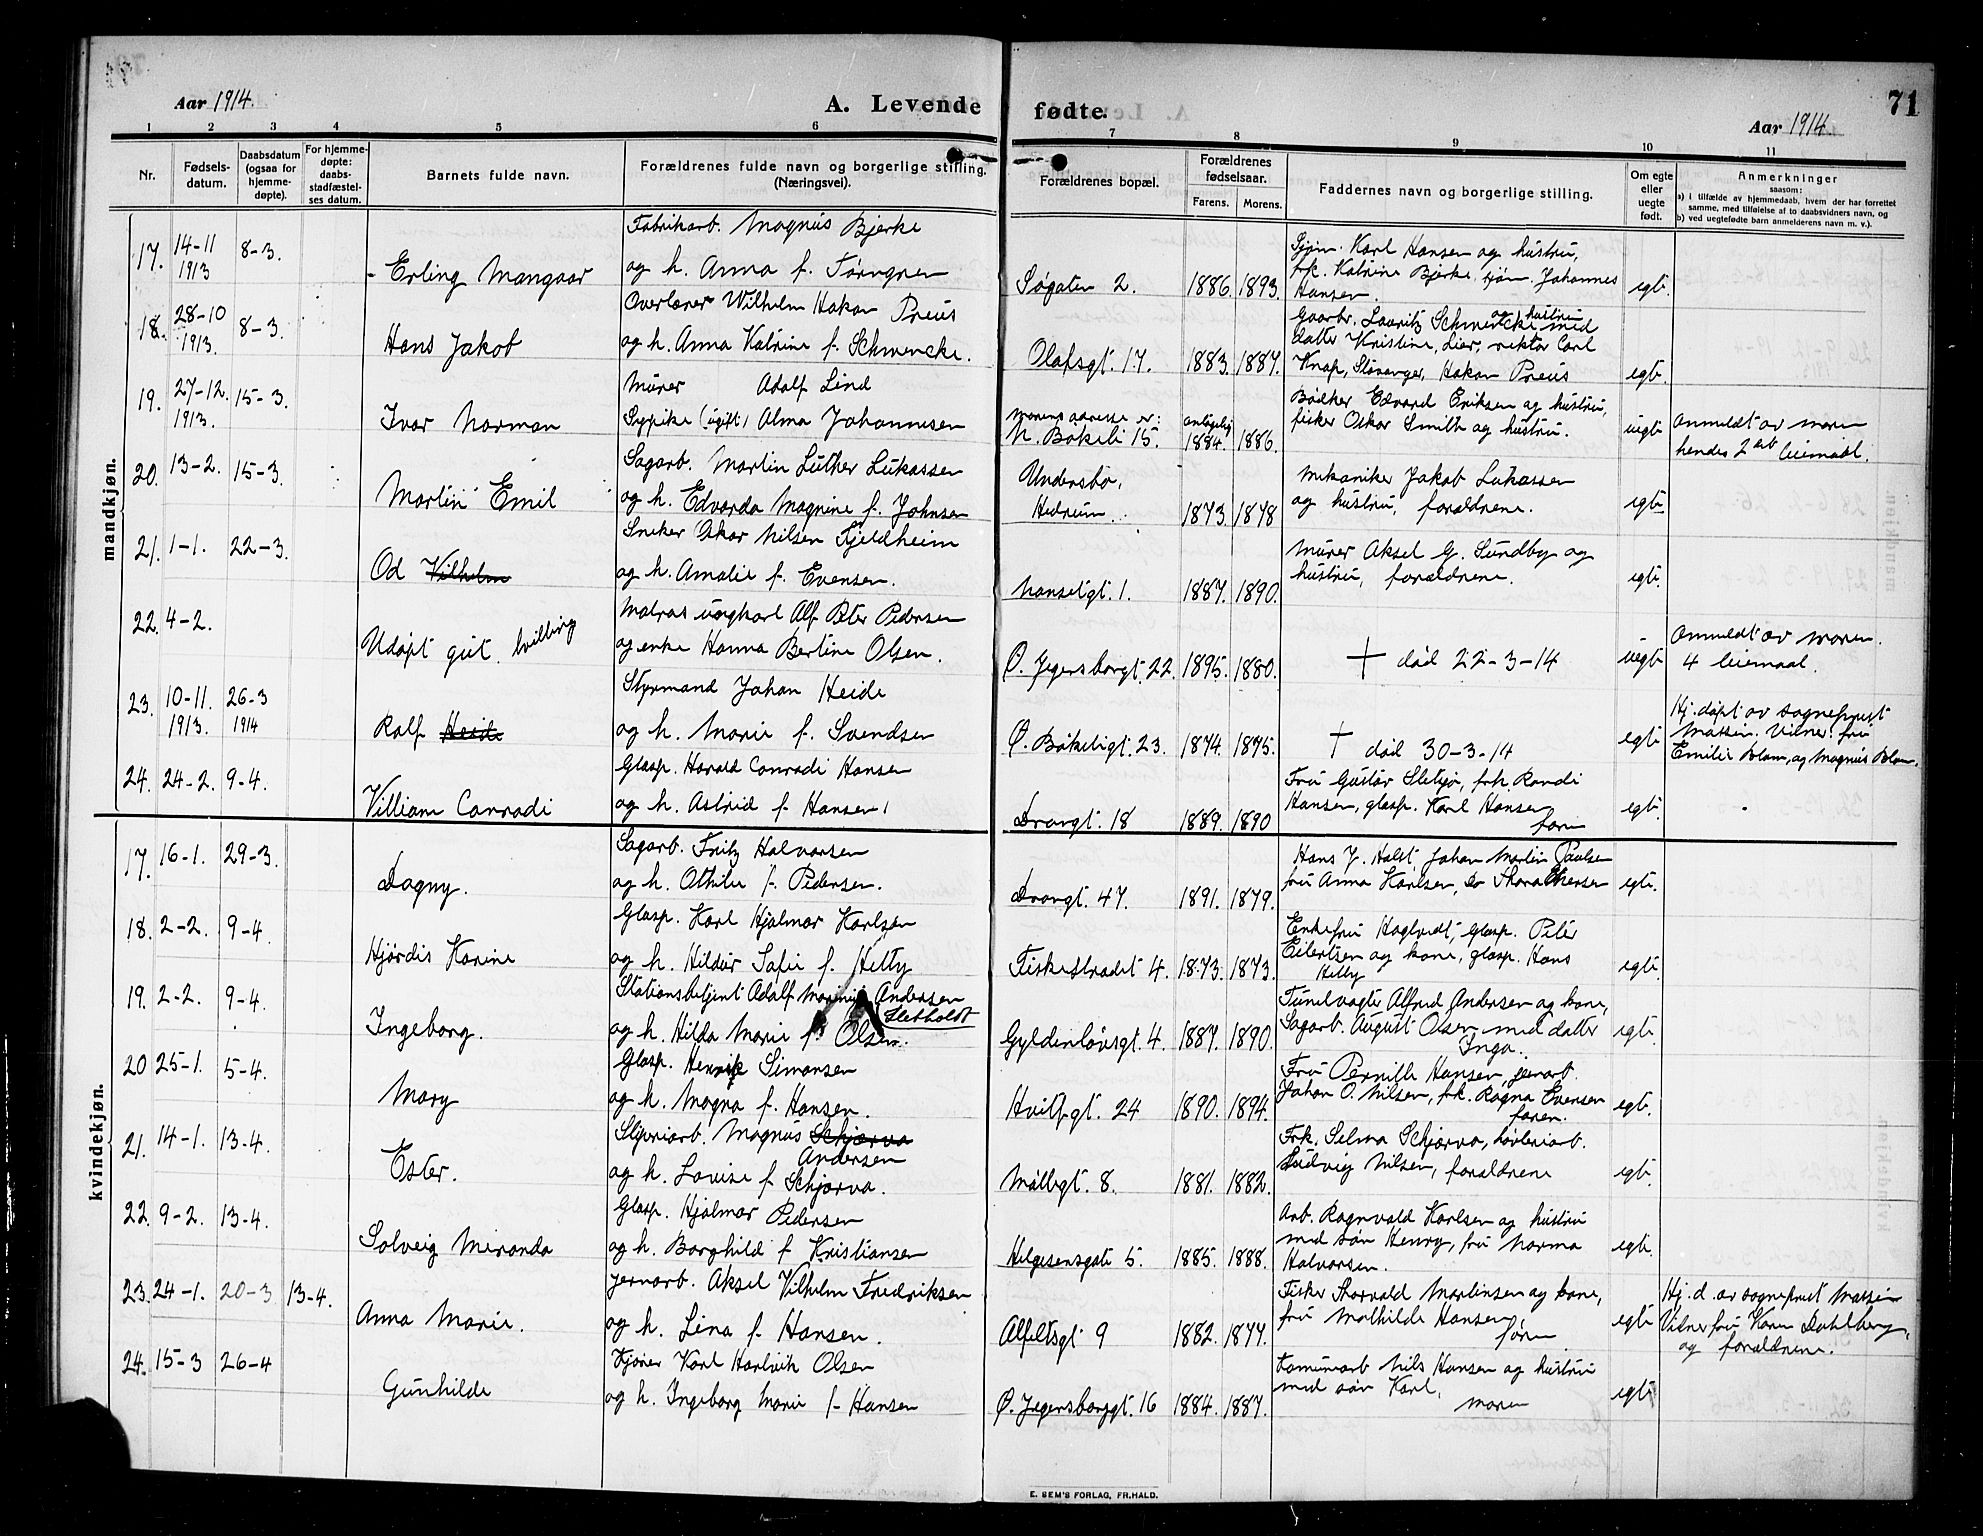 Aar 1914.
A. Levende fødte.
Aar 1914
71
1 2 3 4 5 6 7 8 9 10 11
Nr.
Fødsels-
datum.
Daabsdatum
(ogsaa for
hjemme-
døpte).
For hjemme-
døpte:
daabs-
stadfæstel-
ses datum.
Barnets fulde navn.
Forældrenes fulde navn og borgerlige stilling.
(Næringsvei).
Forældrenes bopæl.
Forældrenes
fødselsaar.
Farens. Morens.
Faddernes navn og borgerlige stilling.
Om egte
eller
uegte
født.
Anmerkninger
saasom:
a) i tilfælde av hjemmedaab, hvem der har forrettet
samme, med tilføielse af to daabsvidners navn, og
b) ved uegtefødte barn anmelderens navn m. v.).
mandkjøn.
17. 14-11 1913 8-3.
Erling Mangaar
Fabrikarb. Magnus Bjerke
og h. Anna f. Törngren
Søgaten 2. 1886. 1893.
Sjøm. Karl Hansen og hustru,
frk. Katrine Bjerke, sjøm. Johannes
Hansen.
egte.
18. 28-10 1913. 8-3.
Hans Jakob
Overlærer Wilhelm Hakon Preus
og h. Anna Katrine f. Schwencke.
Olafsgt. 17. 1883. 1887.
Gaarbr. Lauritz Schwencke og hustru med
datter Kristine, Lier, rektor Carl
Knap, Stavanger, Hakon Preus
egte.
19. 27-12. 1913. 15-3.
Ivar Norman
Murer Adolf Lind
Sypike (ugift) Alma Johannesen
Morens adresse er:
N. Bøkeli 15. antagelig 1884. 1886.
Bødker Edvard Eriksen og hustru,
fisker Oskar Smith og hustru.
uegte
Anmeldt av moren
hendes 2det leiemaal.
20. 13-2. 15-3.
Martin Emil
Sagarb. Martin Luther Lukassen
og h. Edvarda Magnine f. Johnsen
Undersbo,
Hedrum. 1873. 1878
Mekaniker Jakob Lukassen
og hustru, forældrene.
egte.
21. 1-1. 22-3.
Od Vilhelm
Snekker Oskar Nilsen Fjeldheim
og h. Amalie f. Evensen.
Nanseitgt. 1. 1887. 1890.
Murer Aksel G. Sundby og
hustru, forældrene.
egte.
22. 4-2.
Udøpt gut. tvilling
Matros ungkarl Alf Peter Pedersen
og enke Hanna Bertine Olsen.
Ø. Jegersborgt. 22. 1895. 1880.
† død 22-3-14
uegte
Anmeldt av moren.
4 leiemaal.
23. 10-11. 1913. 26-3 1914
Ralf Heide
Styrmand Johan Heide
og h. Marie f. Svendsen
Ø. Bøkeligt. 23. 1874. 1875.
† død 30-3-14
egte
Hj. døpt av sogneprest
Matsin. Vidner: fru
Emilie Blam, og Magnus Blam.
24. 24-2. 9-4.
Villiam Conradi
Glasp. Harald Conradi Hansen
og h. Astrid f. Hansen,
Drangt. 18 1889. 1890
Fru Gustav Sletsjø, frk. Randi
Hansen, glasp. Karl Hansen
faren
egte.
kvindekjøn.
17. 16-1. 29-3.
Dagny.
Sagarb. Fritz Halvorsen
og h. Othilie f. Pedersen.
Drangt. 47. 1891. 1879.
Hans J. Holst, Johan Martin Paulsen
fru Anna Karlsen, Do Thora Evensen
egte.
18. 2-2. 9-4.
Hjørdis Karine
Glasp. Karl Hjalmar Karlsen
og h. Hildur Sofie f. Hetty
Fiskestrædet 4. 1873. 1873.
Enkefru Hogtvedt, glasp. Peter
Eilertsen og kone, glasp. Hans
Hetty
egte.
19. 2-2. 9-4.
Ingeborg.
Stationsbetjent Adolf Marinius Andersen
Sletholdt
og h. Hilda Marie f. Olsen.
Gyldenløvsgt. 4. 1887. 1890.
Tunelvagter Alfred Andersen og kone,
Sagarb. August Olsen med datter
Inga.
egte.
20 25-1. 5-4.
Mary
Glasp. Henrik Simonsen
og h. Magna f. Hansen.
Hvitfgt. 24 1890. 1894.
Fru Pernille Hansen, jernarb.
Johan O. Nilsen, frk. Ragna Evensen
faren.
egte.
21. 14-1. 13-4.
Ester.
Slipriarb. Magnus Schjærva
Andersen
og h. Lovise f. Schjærva.
Møllegt. 8. 1881. 1882.
Frk. Selma Schjærva, høvleriarb.
Ludvig Nilsen, forældrene
egte.
22. 9-2. 13-4.
Solveig Miranda
Glasp. Hjalmar Pedersen
og h. Borghild f. Kristiansen
Helgesensgate 5. 1885. 1888.
Arb. Ragnvald Karlsen og hustru
med søn Henry, fru Norma
Halvorsen.
egte.
23. 24-1. 20-3 13-4.
Anna Marie.
Jernarb. Aksel Vilhelm Fredriksen
og h. Lina f. Hansen.
Alfeltsgt 9 1882. 1877.
Fisker Thorvald Martinsen og kone,
fru Mathilde Hansen,
faren
egte
Hj. d. av sogneprest Matsin
Vidner fru Karen Dahlberg,
og forældrene.
24. 15-3 26-4
Gunhilde
Kjører Karl Hartvik Olsen
og h. Ingeborg Marie f. Hansen
Ø. Jegersborggt. 16 1884. 1887.
Tømmerarb Nils Hansen og hustru
med søn Karl,
moren
egte
E. SEM'S FORLAG, FR.HALD.